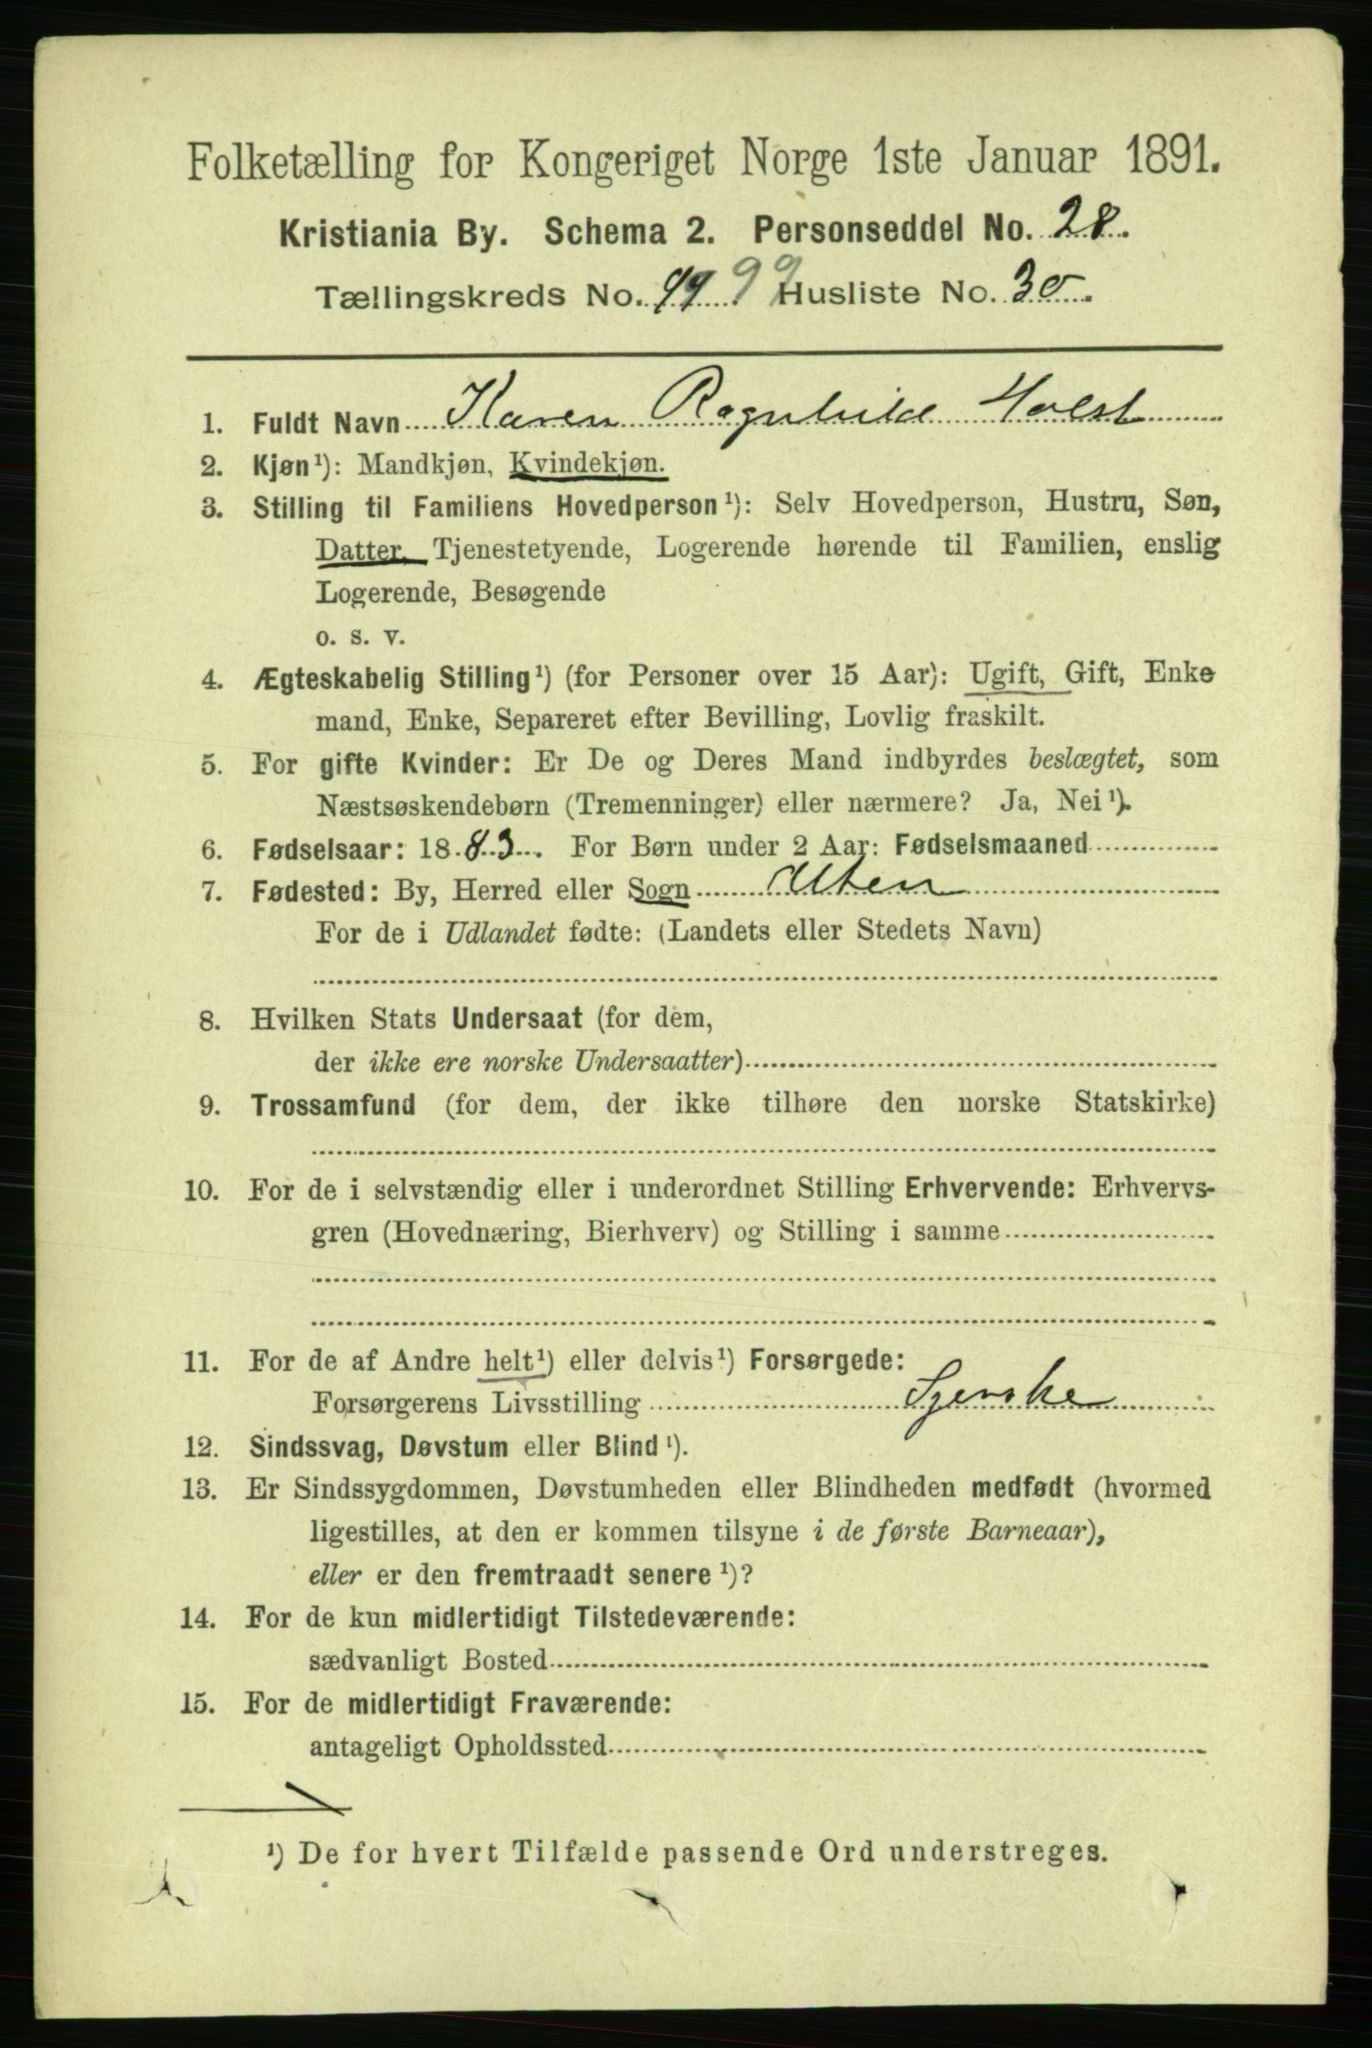 Folketælling for Kongeriget Norge 1ste Januar 1891.
Kristiania By. Schema 2. Personseddel No. 28.
Tællingskreds No. 99 99 Husliste No. 30.
1. Fuldt Navn Karen Ragnhild Holst
2. Kjøn¹): Mandkjøn, Kvindekjøn.
3. Stilling til Familiens Hovedperson¹): Selv Hovedperson, Hustru, Søn,
Datter, Tjenestetyende, Logerende hørende til Familien, enslig
Logerende, Besøgende
o. s. v.
4. Ægteskabelig Stilling¹) (for Personer over 15 Aar): Ugift, Gift, Enke
mand, Enke, Separeret efter Bevilling, Lovlig fraskilt.
5. For gifte Kvinder: Er De og Deres Mand indbyrdes beslægtet, som
Næstsøskendebørn (Tremenninger) eller nærmere? Ja, Nei¹).
6. Fødselsaar: 1883. For Børn under 2 Aar: Fødselsmaaned
7. Fødested: By, Herred eller Sogn
For de i Udlandet fødte: (Landets eller Stedets Navn)
8. Hvilken Stats Undersaat (for dem,
der ikke ere norske Undersaatter)
9. Trossamfund (for dem, der ikke tilhøre den norske Statskirke)
10. For de i selvstændig eller i underordnet Stilling Erhvervende: Erhvervs-
gren (Hovednæring, Bierhverv) og Stilling i samme
11. For de af Andre helt¹) eller delvis¹) Forsørgede:
Forsørgerens Livsstilling
12. Sindssvag, Døvstum eller Blind¹).
13. Er Sindssygdommen, Døvstumheden eller Blindheden medfødt (hvormed
ligestilles, at den er kommen tilsyne i de første Barneaar),
eller er den fremtraadt senere¹)?
14. For de kun midlertidigt Tilstedeværende:
sædvanligt Bosted
15. For de midlertidigt Fraværende:
antageligt Opholdssted
¹) De for hvert Tilfælde passende Ord understreges.